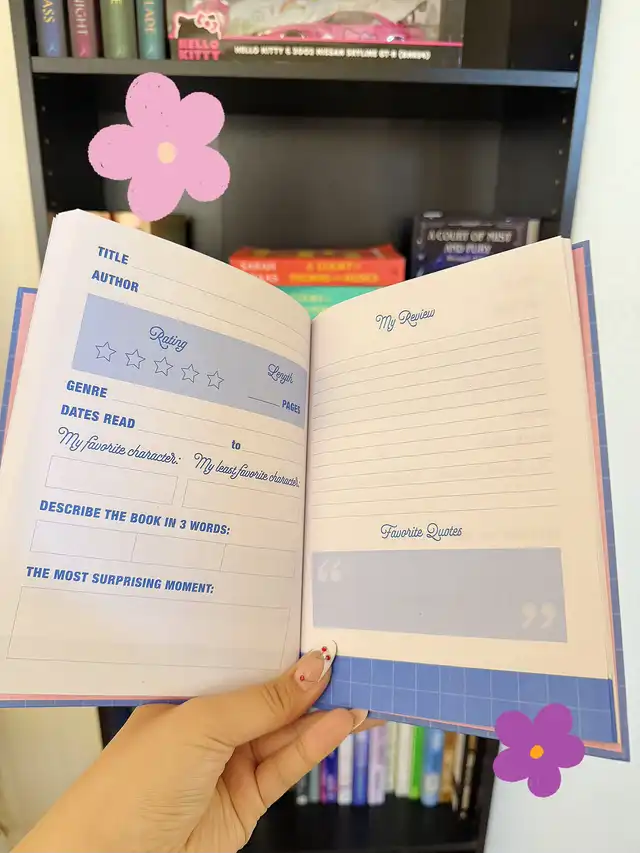 HELLO KITTY
HELLO KITTY & 2002 NISSAN SKYLINE GT-R (BNR34)
A COURT OF MIST
AND FURY
SARAH
A COURT OF
THORNS AND ROSES
TITLE
AUTHOR
Rating
Length
PAGES
GENRE
DATES READ
to
My favorite character:
My least favorite character:
DESCRIBE THE BOOK IN 3 WORDS:
THE MOST SURPRISING MOMENT:
My Review
Favorite Quotes
“
”